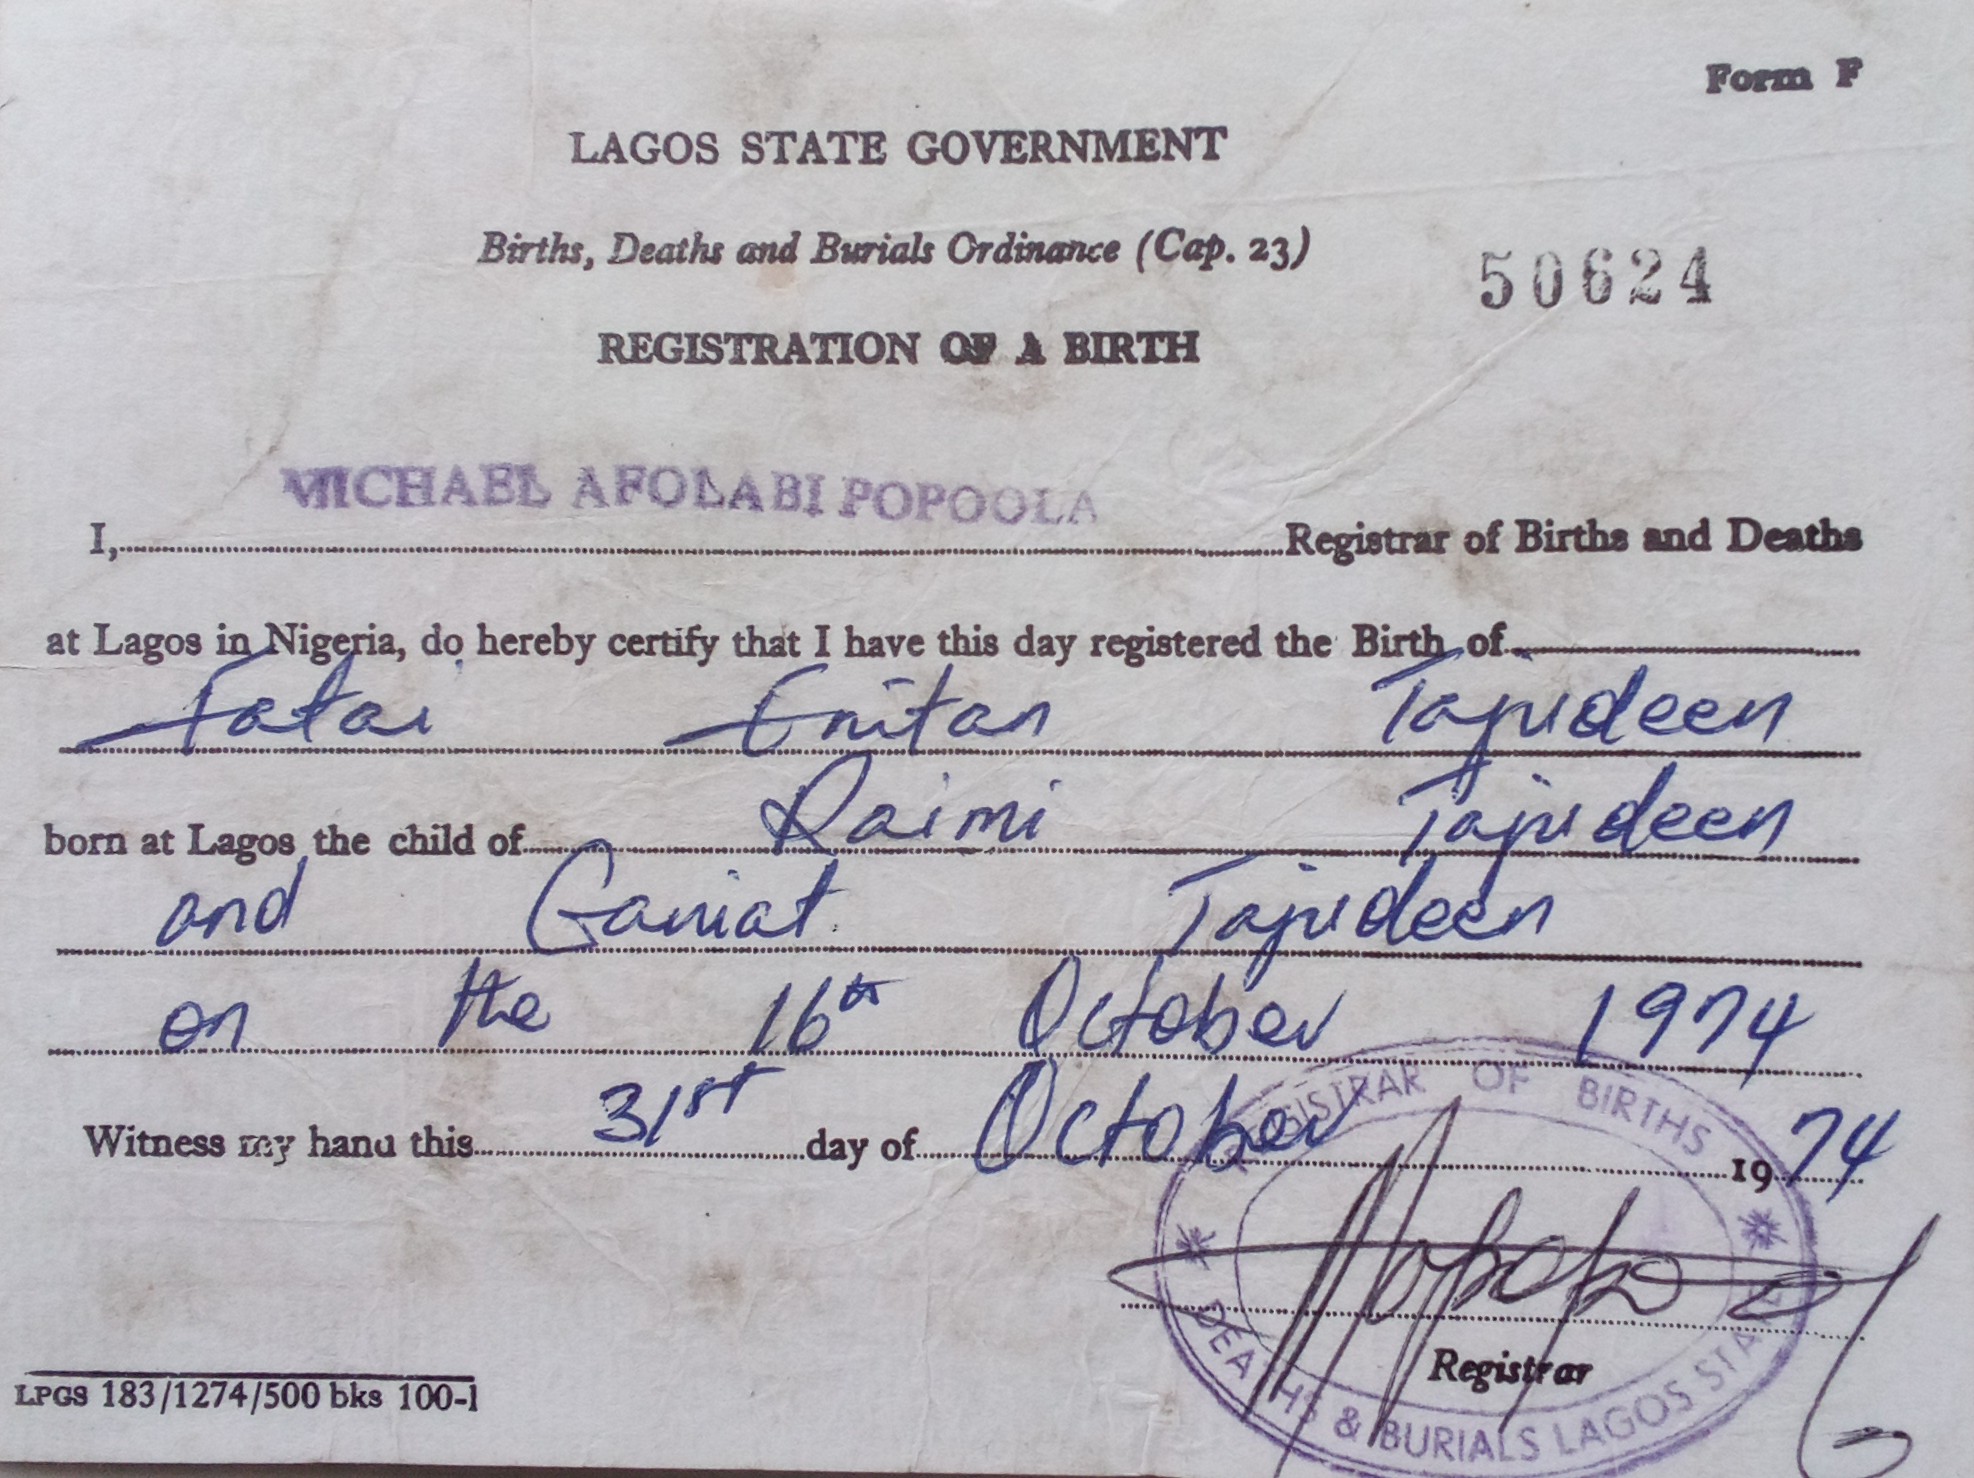 Form F
LAGOS STATE GOVERNMENT
Births, Deaths and Burials Ordinance (Cap. 23)
50624
REGISTRATION OF A BIRTH
MICHAEL AFOLABI POPOOLA
I,....................Registrar of Births and Deaths
at Lagos in Nigeria, do hereby certify that I have this day registered the Birth of....................
Fatai Enitan Tajudeen
born at Lagos the child of Raimi Tajudeen
and Ganiat Tajudeen
on the 16th October 1974
Witness my hand this 31st day of October 1974
REGISTRAR OF BIRTHS
DEATHS & BURIALS LAGOS STATE
Registrar
LPGS 183/1274/500 bks 100-1